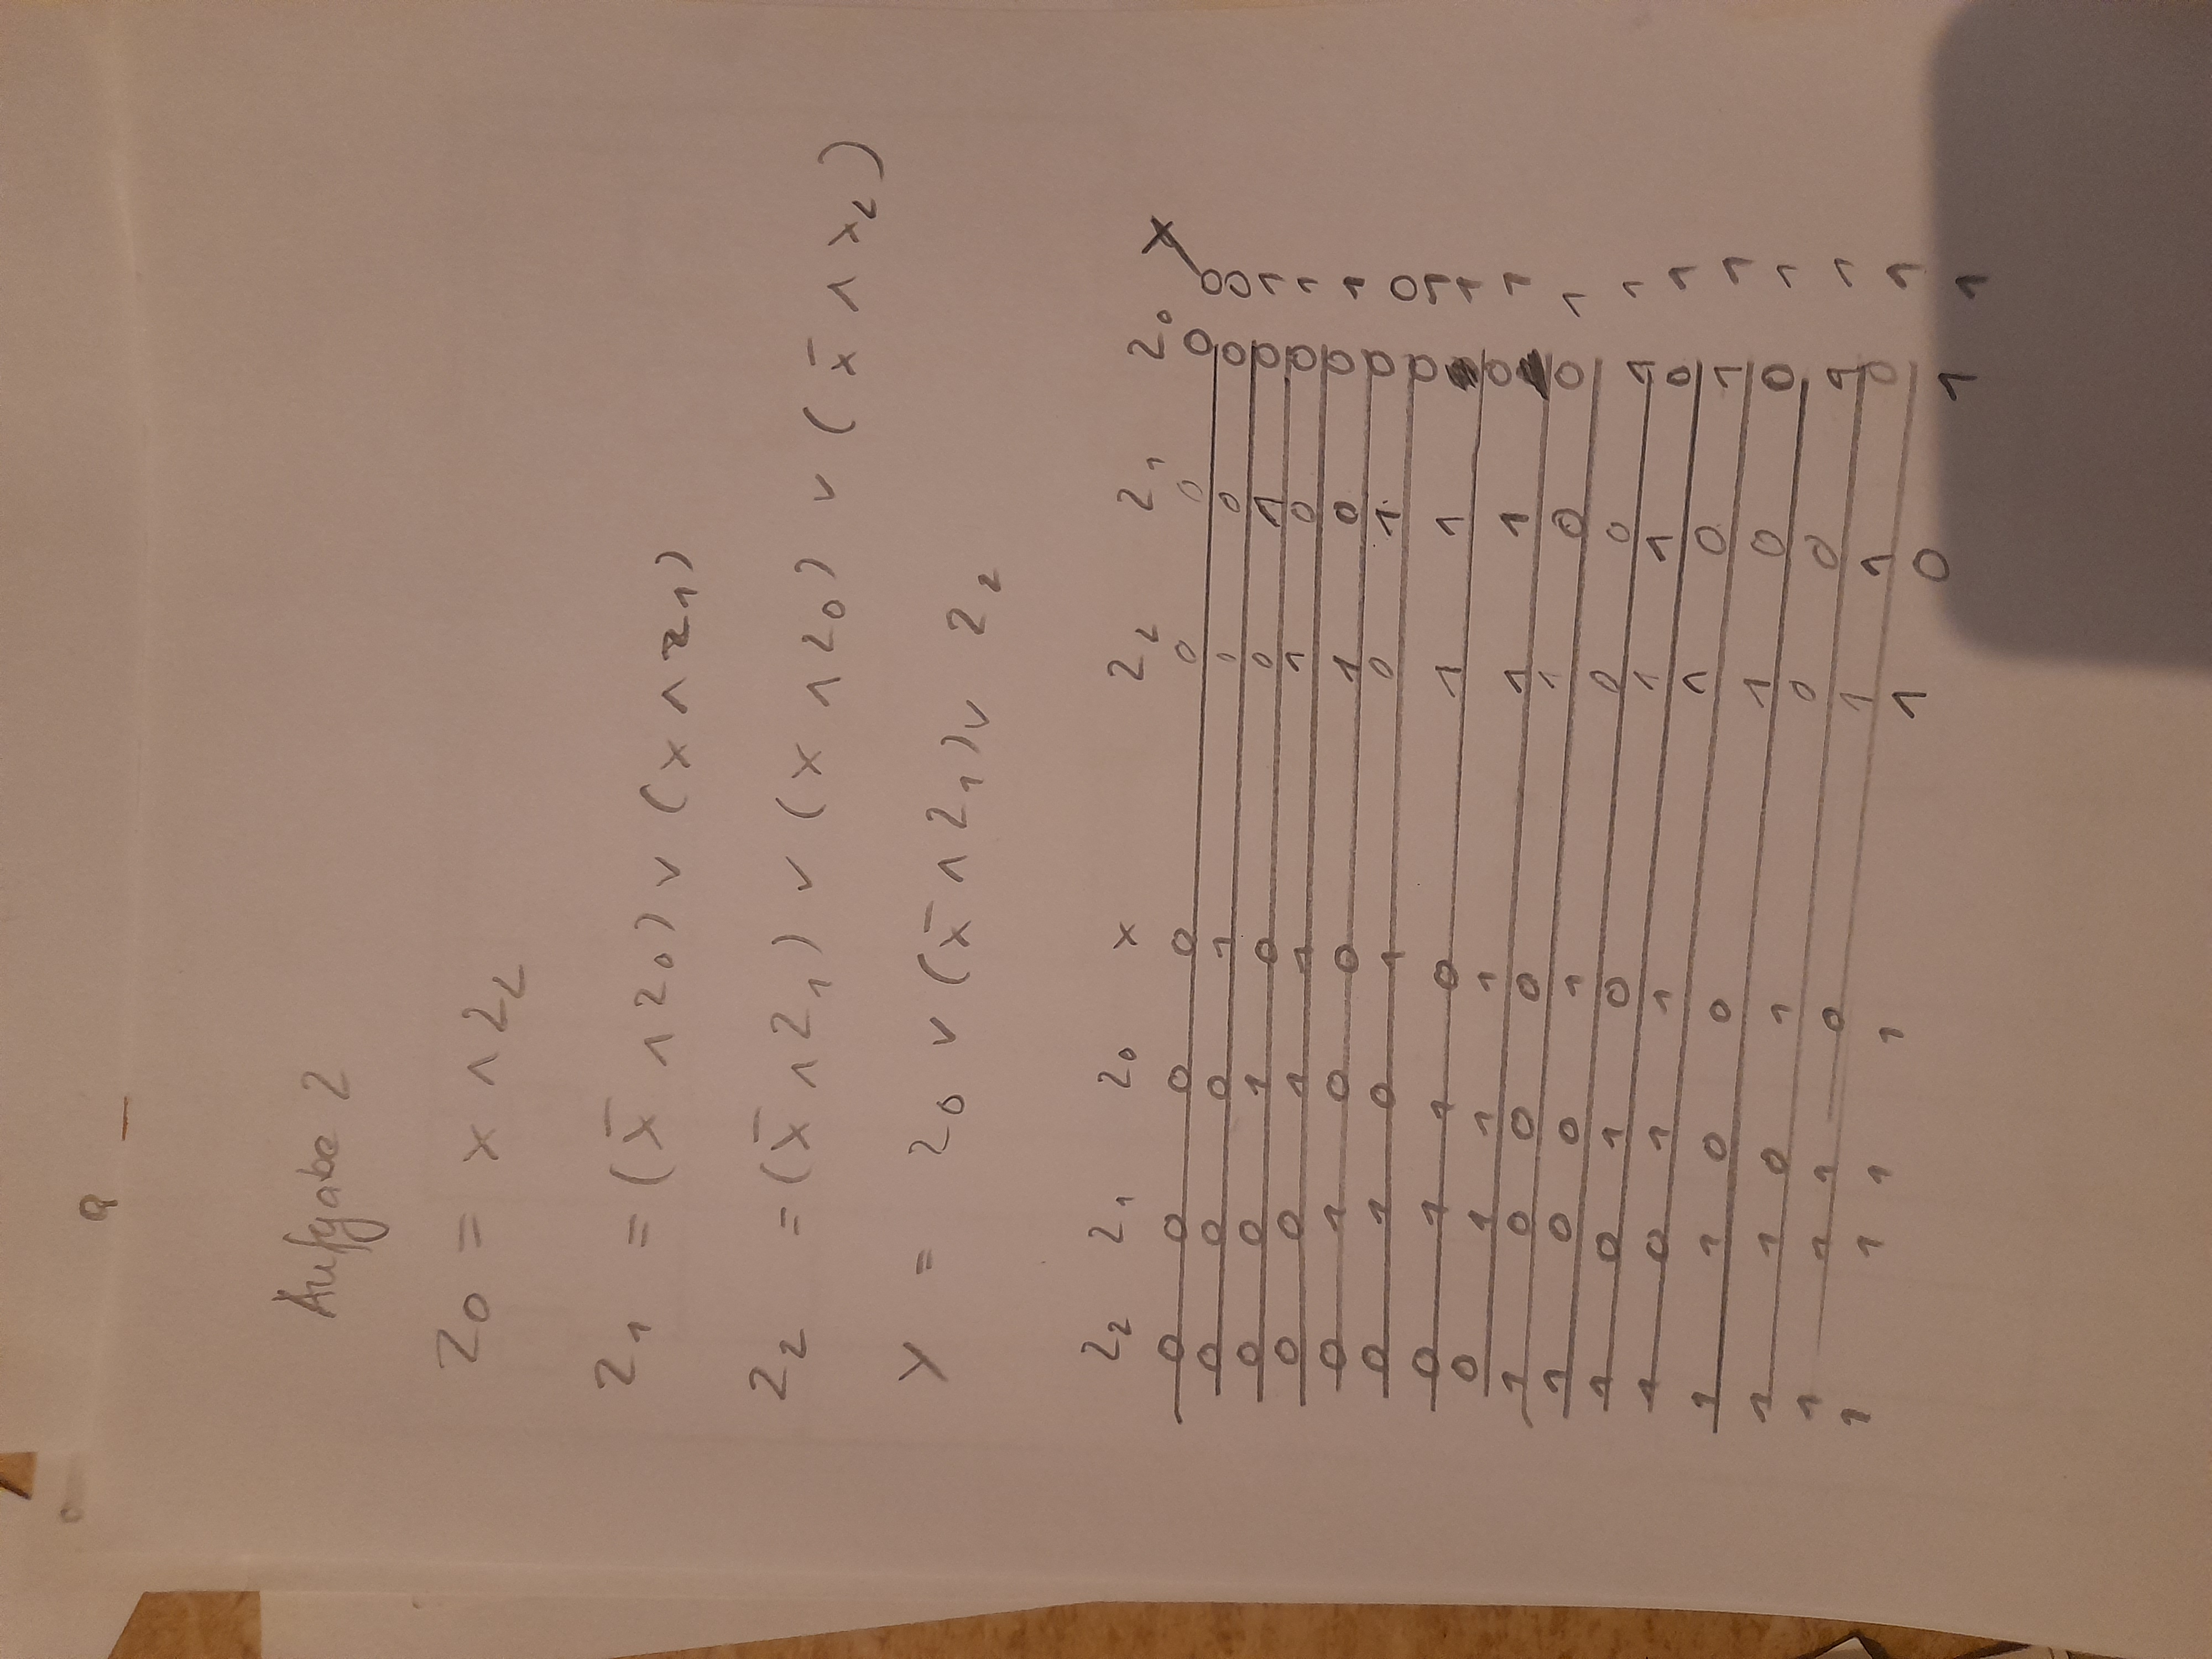 Aufgabe 2
Z0 = x ∧ Z2
Z1 = (x̄ ∧ Z0) ∨ (x ∧ Z1)
Z2 = (x̄ ∧ Z1) ∨ (x ∧ Z0) ∨ (x̄ ∧ x2)
Y = Z0 ∨ (x̄ ∧ Z1) ∨ Z2
Z2 Z1 Z0 x Z2 Z1 Z0 X
0 0 0 0 0 0 0 0
0 0 0 1 0 0 0 0
0 0 1 0 0 1 0 1
0 0 1 1 1 0 0 1
0 1 0 0 1 0 0 1
0 1 0 1 0 1 0 0
0 1 1 0 1 1 0 1
0 1 1 1 1 1 0 1
1 0 0 0 1 0 0 1
1 0 0 1 0 0 1 1
1 0 1 0 1 1 0 1
1 0 1 1 1 0 1 1
1 1 0 0 1 0 0 1
1 1 0 1 0 0 1 1
1 1 1 0 1 1 0 1
1 1 1 1 1 0 1 1
1